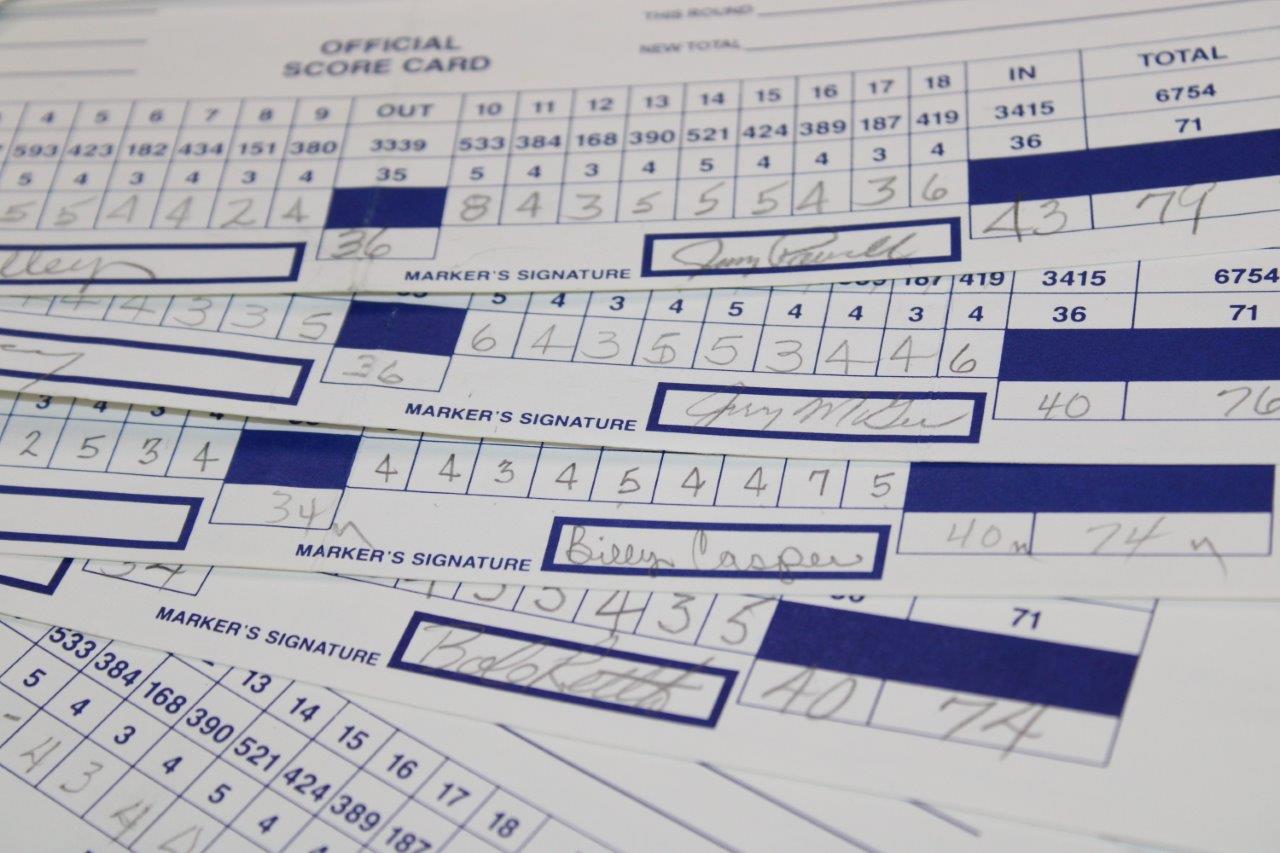 THIS ROUND
OFFICIAL
SCORE CARD
NEW TOTAL
4 5 6 7 8 9 OUT 10 11 12 13 14 15 16 17 18 IN TOTAL
593 423 182 434 151 380 3339 533 384 168 390 521 424 389 187 419 3415 6754
5 4 3 4 3 4 35 5 4 3 4 5 4 4 3 4 36 71
5 5 4 4 2 4 36 8 4 3 5 5 5 4 3 6 43 79
MARKER'S SIGNATURE
187 419 3415 6754
5 4 3 4 5 4 4 3 4 36 71
4 4 3 3 5 36 6 4 3 5 5 3 4 4 6 40 76
MARKER'S SIGNATURE Jerry McGee
3 4 3 4
2 5 3 4 34 4 4 3 4 5 4 4 7 5 40 74
MARKER'S SIGNATURE Billy Casper
34 4 3 5 71
MARKER'S SIGNATURE 40 74
533 384 168 390 521 424 389 187
13 14 15 16 17 18
5 4 3 4 5 4
4 3 4